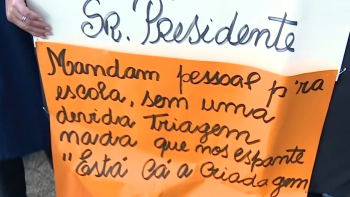 Sr. Presidente
Mandam pessoal p'ra
escola, sem uma
devida Triagem
nada que nos espante
"Está cá a criadagem